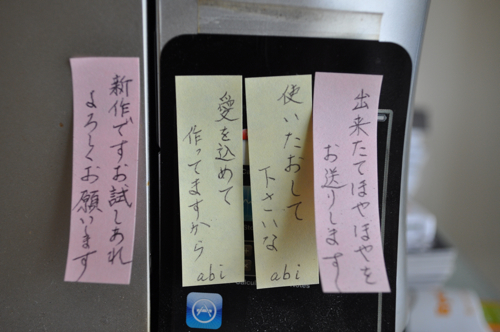 出来たてほやほやを
お送りします
使いたおして
下さいな
abi
愛を込めて
作ってますから
abi
新作ですお試しあれ
よろしくお願いします